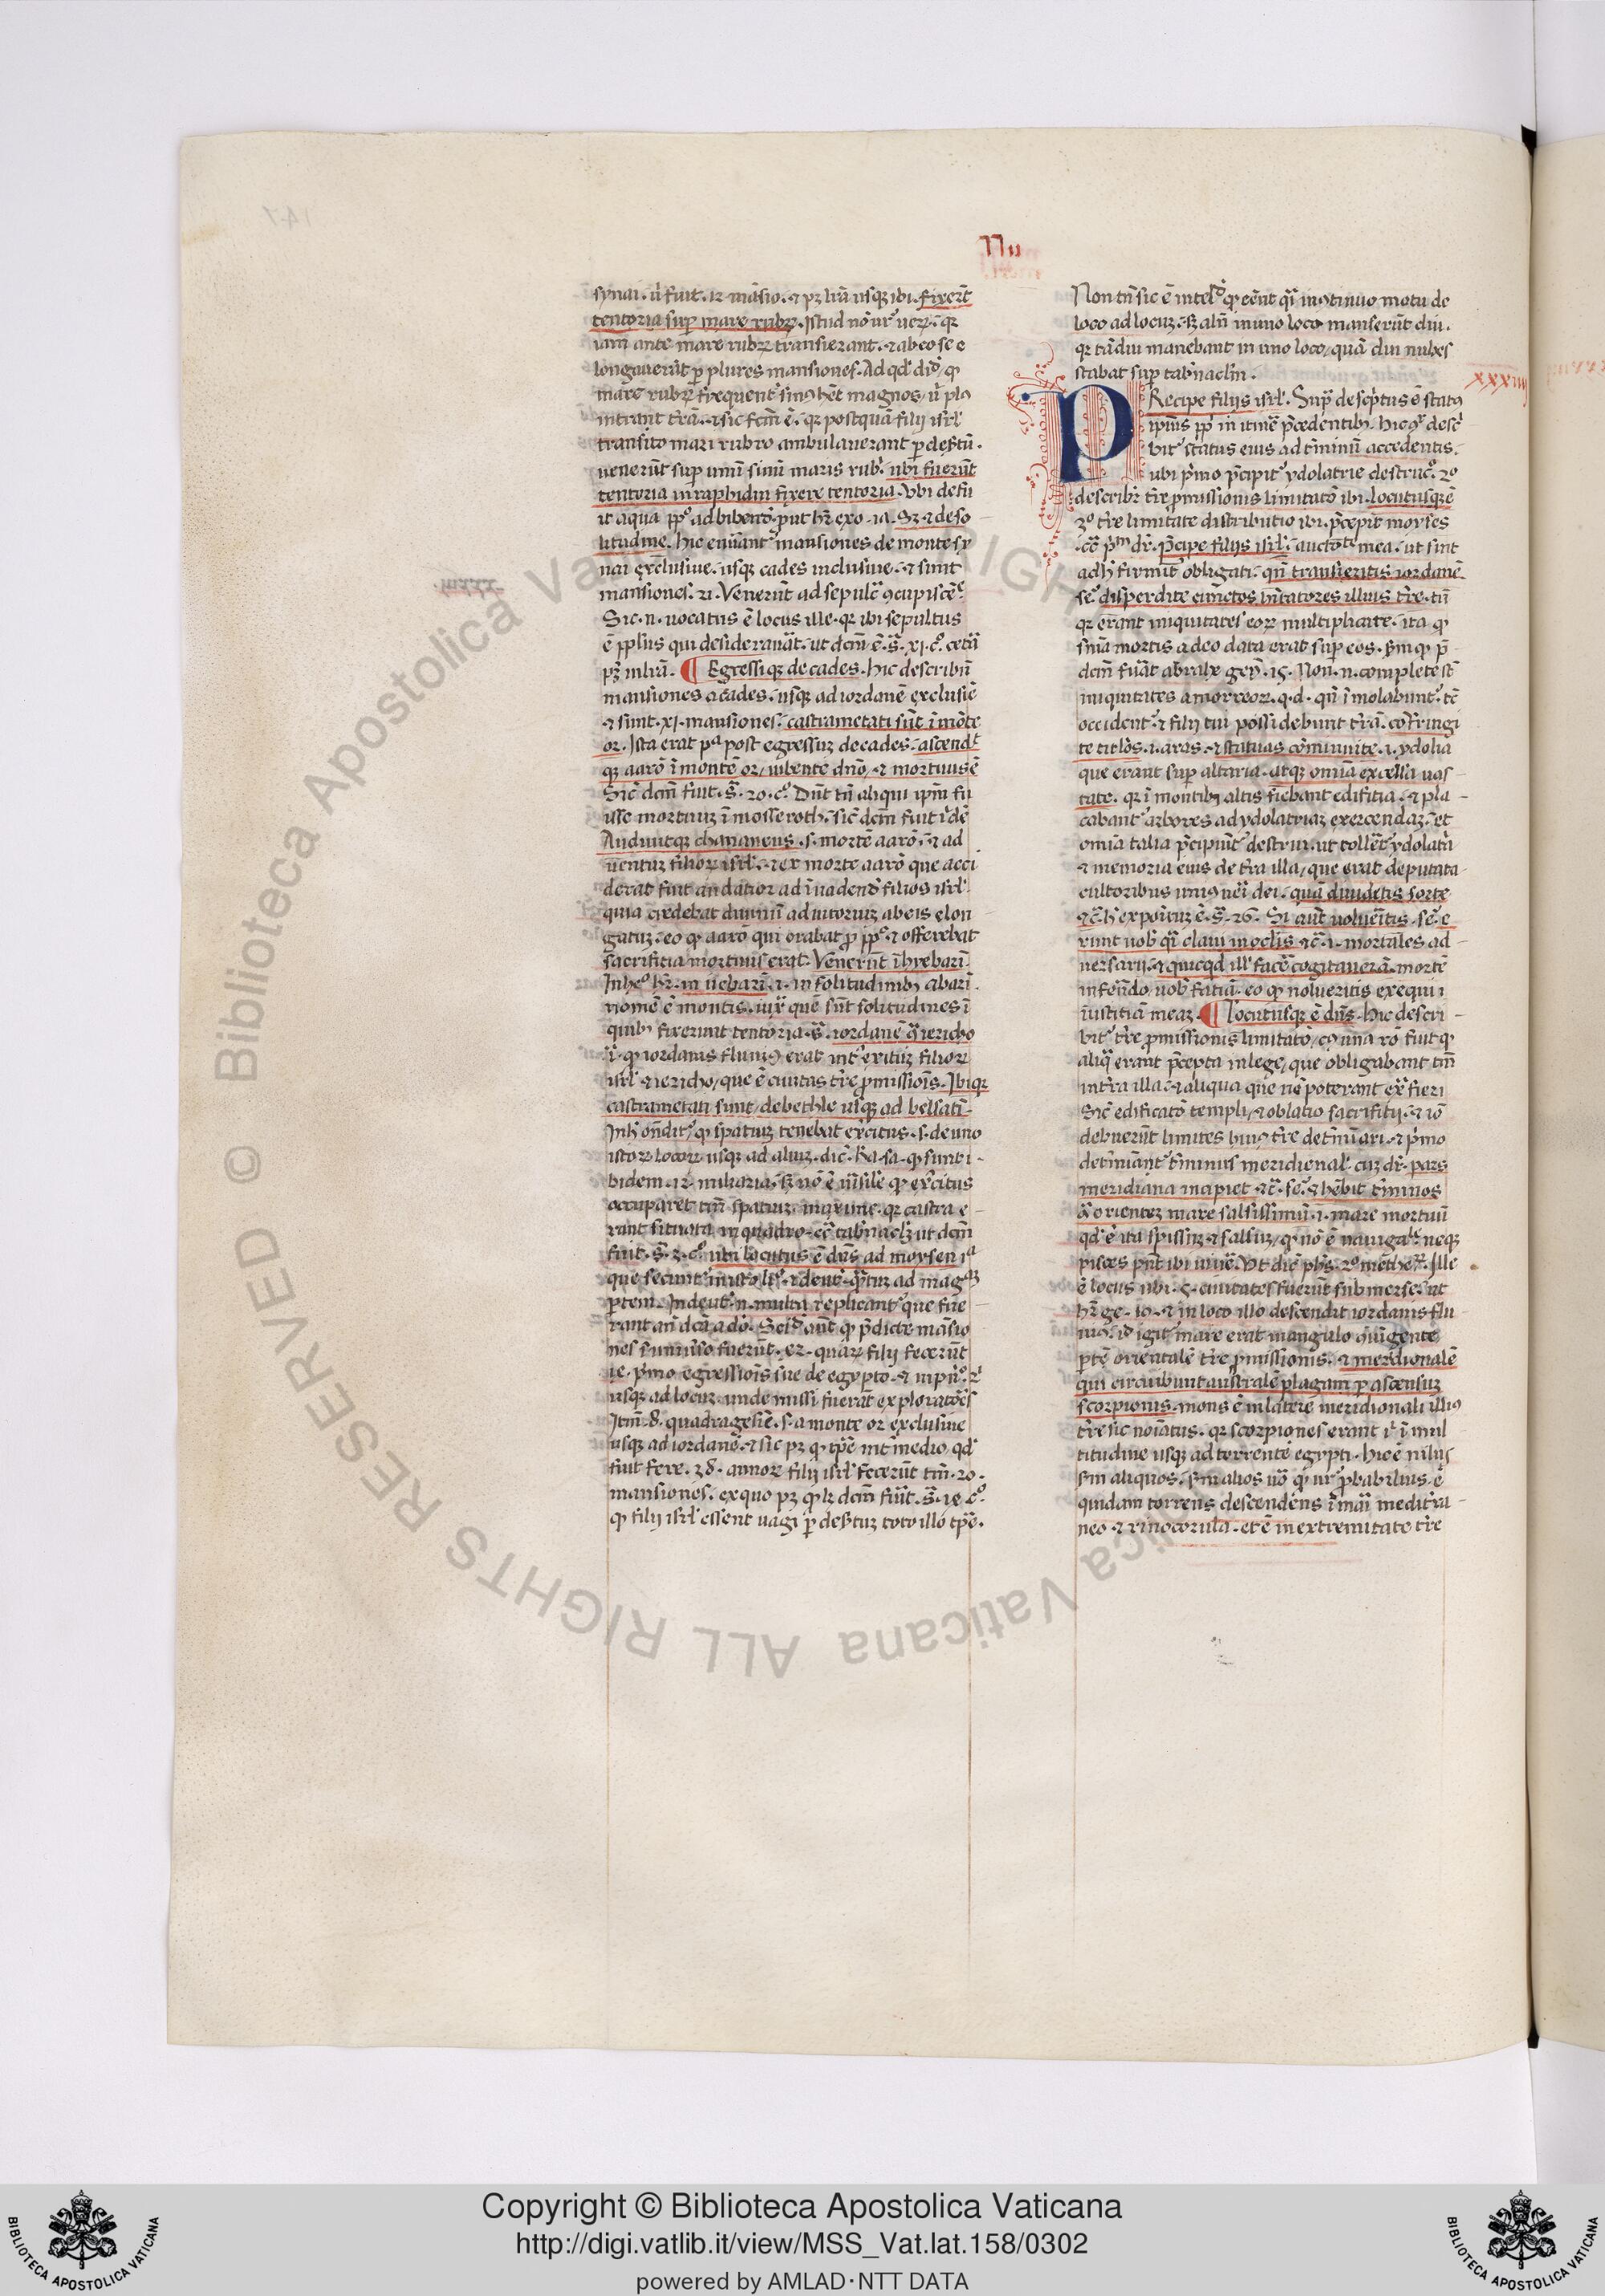 Nu
synai. ũ fuit. 12 mãsio. ⁊ pꝫ lrã usqꝫ ibi. fixerũt
tentoria sup mare rubꝝ. Istud nõ ur̃ uerꝝ. qꝛ
iam ante mare rubꝝ transierant. ⁊ ab eo se e
longauerũt ꝑ plures mansiones. Ad qđ dið, ꝙ
mare rubꝝ frequent̃ sinꝯ hẽt magnos, ũ plꝯ
intrant tr̃ã. ⁊ sic fcm̃ ẽ. qꝛ postquã filij isrl̃
transito mari rubro ambulauerant ꝑ desertũ.
uenerũt sup unũ sinũ maris rubꝛ̃. ubi fuerũt
tentoria in raphidin fixere tentoria. Vbi defu
it aqua pp̃o ad bibendũ ꝓut hr̃ exo. 17. Sꝫ ⁊ de so
litudine. Hic enũant̃ mansiones de monte sy
nai exclusiue. usqꝫ cades inclusiue. ⁊ sunt
mansiones. 21. Venerũt ad sepulc̃ ꝯcupiscẽ.
Sic. n. uocatus ẽ locus ille. qꝛ ibi sepultus
ẽ ppl̃us qui desiderauãt. ut dcm̃ ẽ. s̃. xj. c̃o. cetã
pꝫ in lr̃a. ¶ Egressiqꝫ de cades. Hic describũt̃
mansiones a cades. usqꝫ ad iordanẽ exclusiẽ
⁊ sunt. xj. mansiones. castrametati sũt ĩ mõte
or. Ista erat pᵃ post egressuꝫ de cades. ascendᵗ
qꝫ aarõ ĩ montẽ or, iubente dño, ⁊ mortuus ẽ
Sic̃ dcm̃ fuit. s̃. 20. c̃o. Dñt tñ aliqui ipm̃ fu
isse mortuuꝫ ĩ mosseroth. sic̃ dcm̃ fuit ĩ dẽ
Audiuitqꝫ chananeus. s. mortẽ aarõ. ⁊ ad
uentuꝫ filioꝝ isrl̃. ⁊ ex morte aarõ que acci
derat fuit audatior ad ĩuadendũ filios isrl̃.
quia credebat diuinũ adiutoriuꝫ ab eis elon
gatuꝫ. eo ꝙ aarõ qui orabat ꝓ pp̃o ⁊ offerebat
sacrificia mortuus erat. Venerũt ĩ hyebari.
In heo hr̃. in iiebari. i. in solitudinibꝫ abari.
nomẽ ẽ montis. iux̃ quẽ sũt solitudines ĩ
quibꝫ fixerunt tentoria. s̃. iordanẽ ꝯ̃ iericho
i. ꝙ iordanis fluuiꝯ erat int̃ exituꝫ filioꝝ
isrl̃ ⁊ iericho, que ẽ ciuitas tr̃e ꝓmissiois. Ibiqꝫ
castrametati sunt, de bethle usqꝫ ad belsatĩ.
In h̃ oñdit̃ ꝙ spatiuꝫ tenebat exercitus. s. de uno
istoꝝ locoꝝ usqꝫ ad aliuꝫ. dic̃. Ra. sa. ꝙ sunt i-
bidem. 12. miliaria. sꝫ nõ ẽ uĩsile ꝙ exercitus
occuparet tm̃ spatiuꝫ. maxime. qꝛ castra e-
rant situata in quadro. cc̃ tab̃nacl̃ꝫ ut dcm̃
fuit. s̃. 2. c̃o. ubi locutus ẽ dñs ad moysen iᵃ
que secunt̃ in isto l̃o. ⁊ deut̃. ꝯ̃tuꝫ ad magᵃꝫ
ꝑtem. In deut̃. n. multũ replicant̃ que fue
rant añ dcã a dõ. Sciðaũt ꝙ p̃dicte mãsio
nes ĩ uniũso fuerũt. 42. quaꝝ filij fecerũt
14. p̃mo egressiois sue de egypto. ⁊ in pñ. 2ᵃ
usqꝫ ad locuꝫ unde missi fuerãt exploratores
Itm̃. 8. quadragesiẽ. s. a monte or exclusiue
usqꝫ ad iordanẽ. ⁊ sic pꝫ ꝙ tp̃e int̃medio. qð
fuit fere. 38. annoꝝ filij isrl̃ fecerũt tm̃. 20.
mansiones. ex quo pꝫ ꝙ lꝫ dcm̃ fũit. s̃. 14. c̃o.
ꝙ filij isrl̃ essent uagi ꝑ desertuꝫ toto illo tp̃e.
Non tñ sic ẽ intelð ꝙ eẽnt qᵃi in ꝯtinuo motu de
loco ad locuꝫ. sꝫ alñ in uno loco manserũt diu.
qꝛ tãdiu manebant in uno loco, quã diu nubes
stabat sup tab̃naclm̃.
xxxiiij
PRecipe filijs isrl̃. Supᵃ descptus ẽ statꝯ
ipius ppl̃i in itinẽ p̃cedentibꝫ. Hic ꝯ̃ descⁱ
bit̃ status eius ad t̃minũ accedentis.
ubi p̃mo p̃cipit̃ ydolatrie destruct̃o. 2o
describit̃ tr̃e ꝓmissionis limitatõ ibi. locutusqꝫ ẽ
3o tr̃e limitate distributio ibi. p̃cepit moyses
.cc̃ pᵐ dr̃. p̃cipe filijs isrl̃. auctoᵗᵉ mea. ut sint
ad h̃ firmit̃ obligati. qñ transieritis iordanẽ.
se. disperdite cunctos hĩtatores illius tr̃e. tũ
qꝛ erant iniquitates eoꝝ multiplicate. ita ꝙ
snĩa mortis a deo data erat sup eos. sm̃ ꝙ p̃
dcm̃ fũat abrahe geñ. 15. Non. n. complete st̃
iniquitates amorreoꝝ. q. d. qñ ĩmolabunt̃. tc̃
occident̃ ⁊ filij tui possidebunt tr̃ã. cõfringi
te titlõs. i. aras. ⁊ statuas cõminuite. i. ydolia
que erant sup altaria. atqꝫ omĩa excelsa uas-
tate. qꝛ ĩ montibꝫ altis fiebant edifitia. ⁊ pla-
cabant̃ arbores ad ydolatriaꝫ exercendaꝫ. et
omĩa talia p̃cipiũt̃ destrui. ut tollet̃ ydolatᵃ
⁊ memoria eius de tr̃a illa, que erat deputata
cultoribus uniꝯ ueri dei. quã diuidetis sorte
⁊c̃ h̃ expoituꝫ ẽ. s̃. 26. Si aũt nolueritis. se. e
runt uobꝭ qᵃi claui in oclis ⁊c̃. i. mortales ad-
uersarij. ⁊ quicqð illꝭ facẽ cogitauerã. mortẽ
inferendo, uobꝭ fatiã. eo ꝙ nolueritis exequi i
iustitiã meaꝫ. ¶ Locutusqꝫ ẽ dñs. Hic descri-
bit̃ tr̃e ꝓmissionis limitatõ, cꝯ una rõ fuit ꝙ
aliqᵃ erant p̃cepta in lege, que obligabant tm̃
in tr̃a illa. ⁊ aliqua que nõ poterant exᵃ fieri
Sic̃ edificatõ templi, ⁊ oblatio sacrifitij. ⁊ iõ
debuerũt limites huiꝯ tr̃e det̃mĩari. ⁊ p̃mo
det̃mĩant̃ t̃minus meridionalꝭ. cuꝫ dr̃. pars
meridiana incipiet ⁊c̃. se. ⁊ hẽbit t̃minos
ꝯ̃ orienteꝫ mare salsissimũ. i. mare mortuũ
qð ẽ ita spissuꝫ ⁊ salsuꝫ, ꝙ nõ ẽ nauigabile neqꝫ
pisces pñt ibi uiuẽ. Vt dic̃ phs̃. 2o metheoꝝ. Ille
ẽ locus ubi. 5. ciuitates fuerũt submerse. ut
hr̃ ge. 19. ⁊ in loco illo descendit iordanis flu
uiꝯ. id igit̃ mare erat in angulo ꝯtingente
ꝑtẽ orientalẽ tr̃e ꝓmissionis. ⁊ meridionalẽ
qui circuibunt australẽ plagam ꝑ ascensuꝫ
scorpionis. mons ẽ in latere meridionali illiꝯ
tr̃e sic noĩatus. qꝛ scorpiones erant ibi ĩ mul
titudine usqꝫ ad torrentẽ egypti. hic ẽ nilus
sm̃ aliquos. sm̃ alios uõ ꝙ ur̃ ꝓbabilius. ẽ
quidam torrens descendens ĩ mari medit̃ra-
neo ⁊ rinocorula. et ẽ in extremitate tr̃e
© Biblioteca Apostolica Vaticana ALL RIGHTS RESERVED
Copyright © Biblioteca Apostolica Vaticana
http://digi.vatlib.it/view/MSS_Vat.lat.158/0302
powered by AMLAD·NTT DATA
BIBLIOTECA APOSTOLICA VATICANA
BIBLIOTECA APOSTOLICA VATICANA